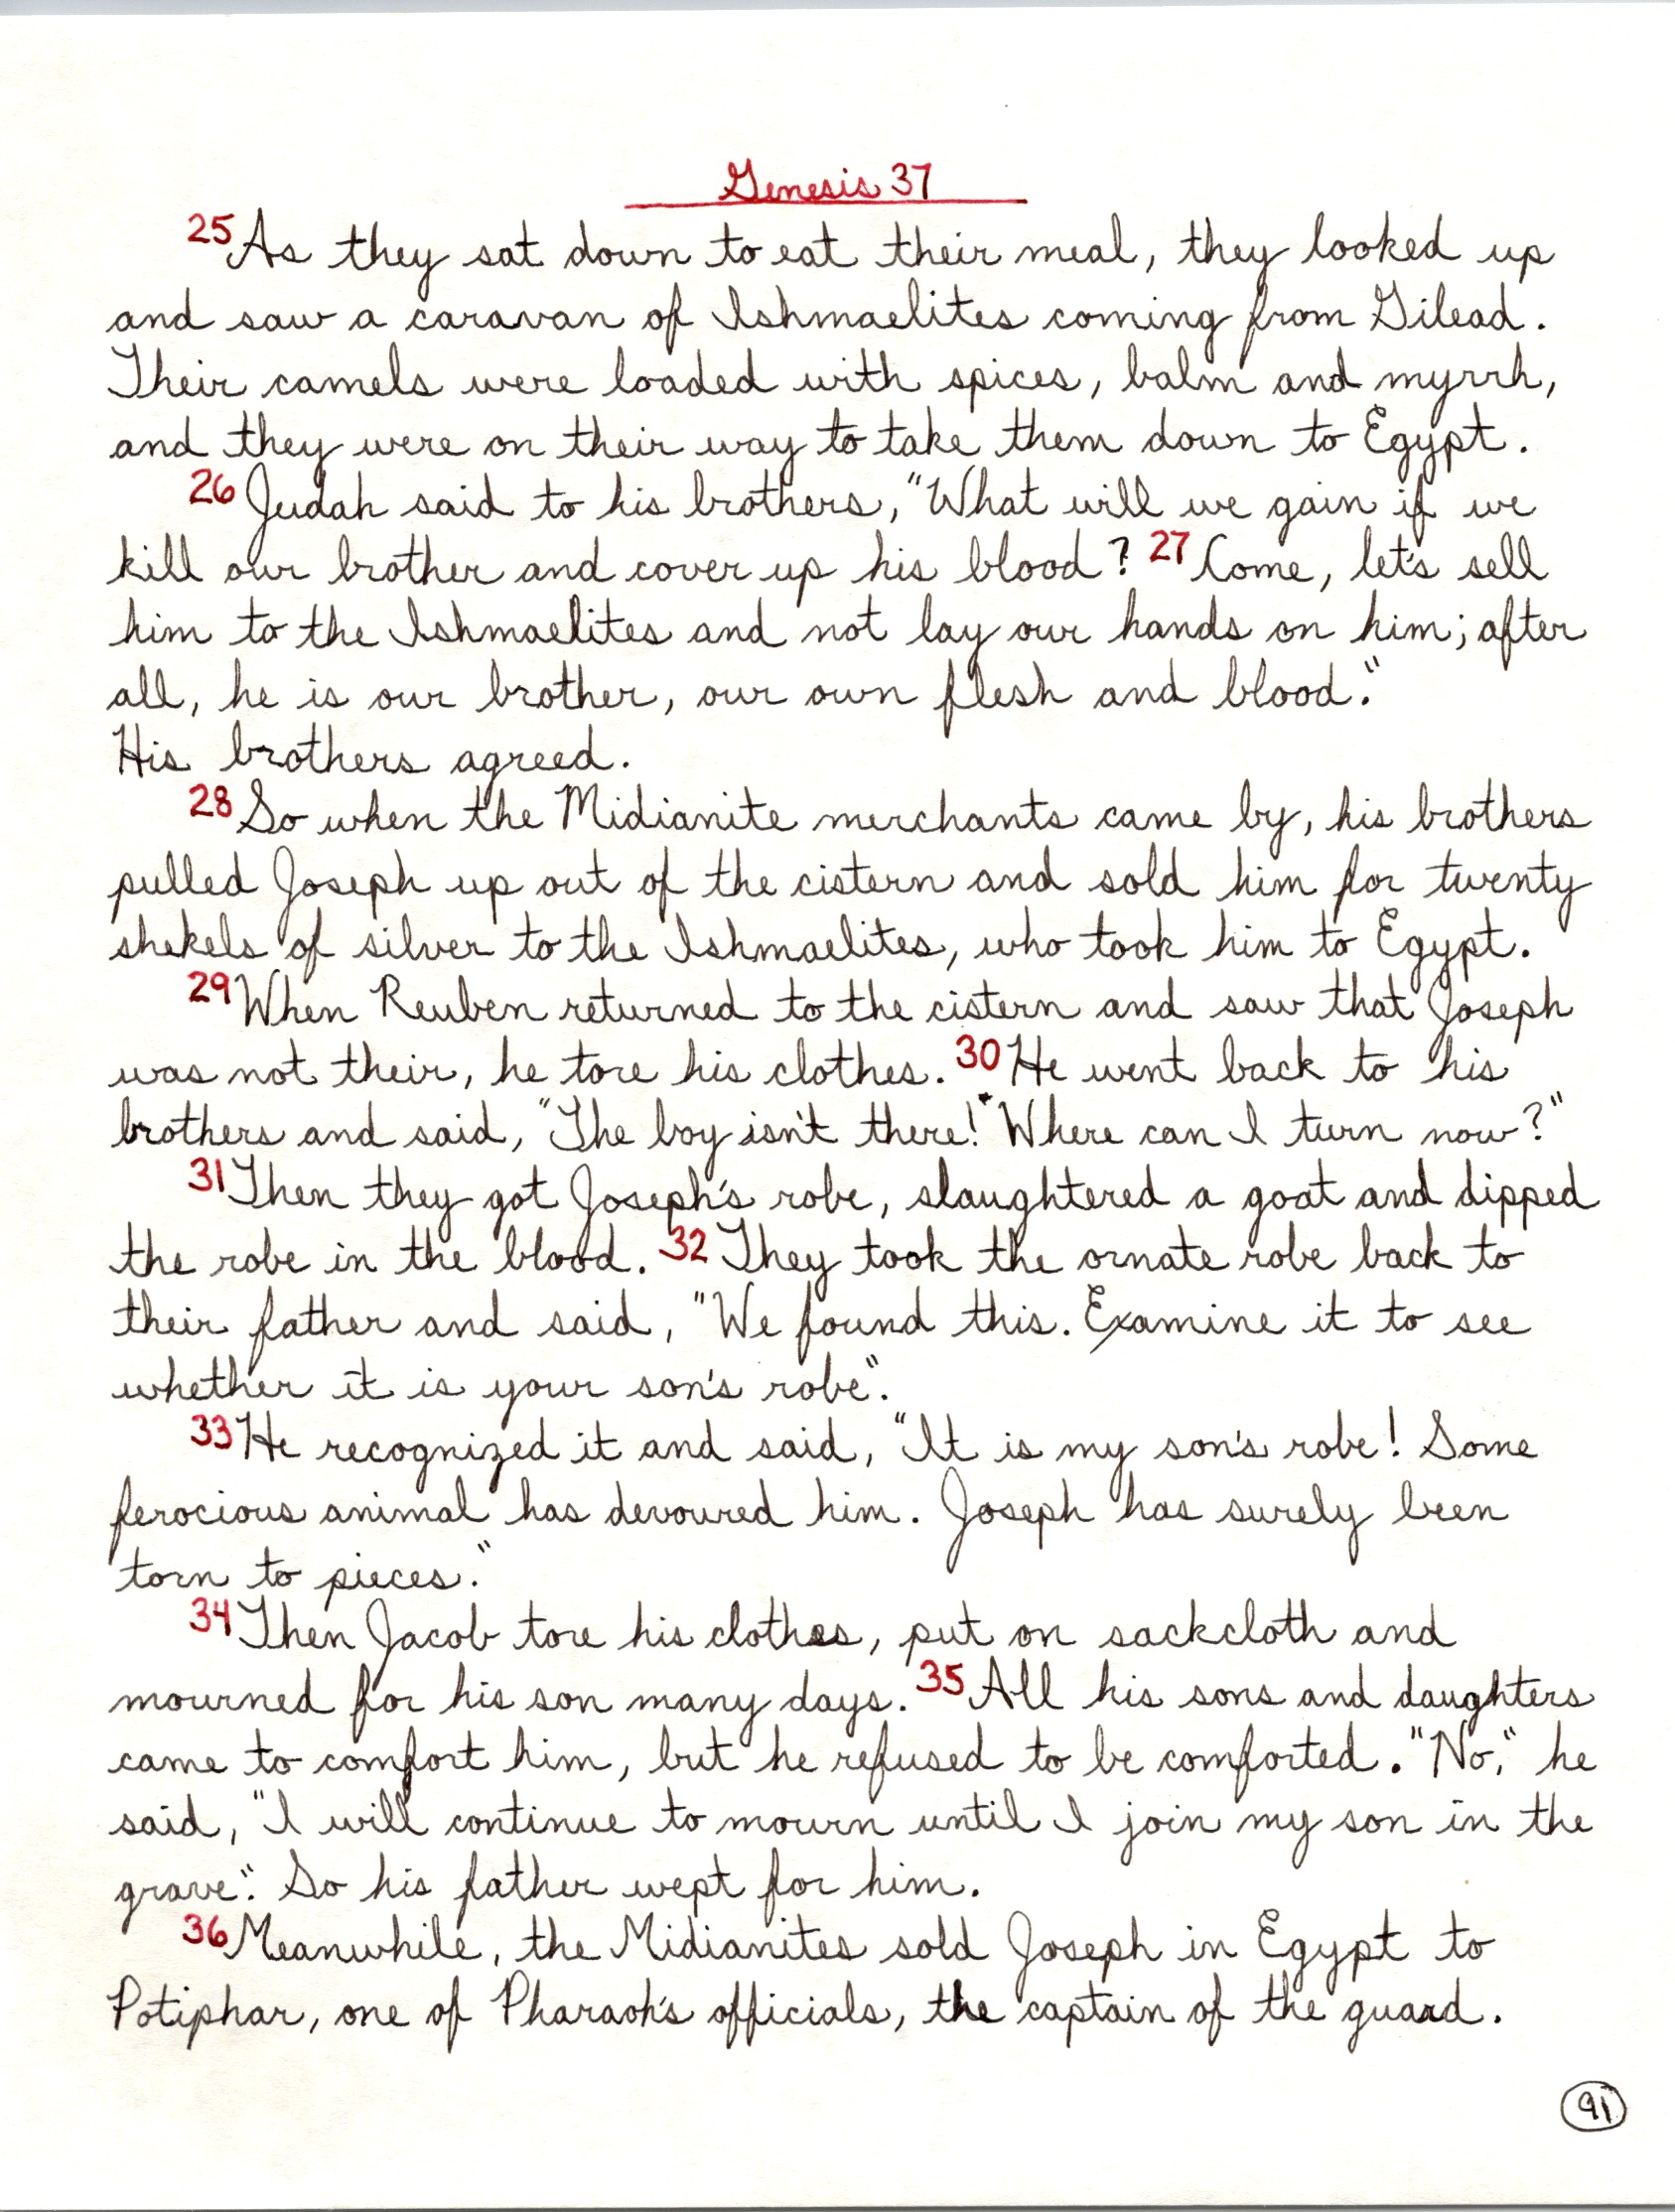 Genesis 37
25 As they sat down to eat their meal, they looked up
and saw a caravan of Ishmaelites coming from Gilead.
Their camels were loaded with spices, balm and myrrh,
and they were on their way to take them down to Egypt.
26 Judah said to his brothers, "What will we gain if we
kill our brother and cover up his blood? 27 Come, let's sell
him to the Ishmaelites and not lay our hands on him; after
all, he is our brother, our own flesh and blood."
His brothers agreed.
28 So when the Midianite merchants came by, his brothers
pulled Joseph up out of the cistern and sold him for twenty
shekels of silver to the Ishmaelites, who took him to Egypt.
29 When Reuben returned to the cistern and saw that Joseph
was not their, he tore his clothes. 30 He went back to his
brothers and said, "The boy isn't there!" Where can I turn now?"
31 Then they got Joseph's robe, slaughtered a goat and dipped
the robe in the blood. 32 They took the ornate robe back to
their father and said, "We found this. Examine it to see
whether it is your son's robe".
33 He recognized it and said, "It is my son's robe! Some
ferocious animal has devoured him. Joseph has surely been
torn to pieces."
34 Then Jacob tore his clothes, put on sackcloth and
mourned for his son many days. 35 All his sons and daughters
came to comfort him, but he refused to be comforted. "No," he
said, "I will continue to mourn until I join my son in the
grave". So his father wept for him.
36 Meanwhile, the Midianites sold Joseph in Egypt to
Potiphar, one of Pharaoh's officials, the captain of the guard.
91